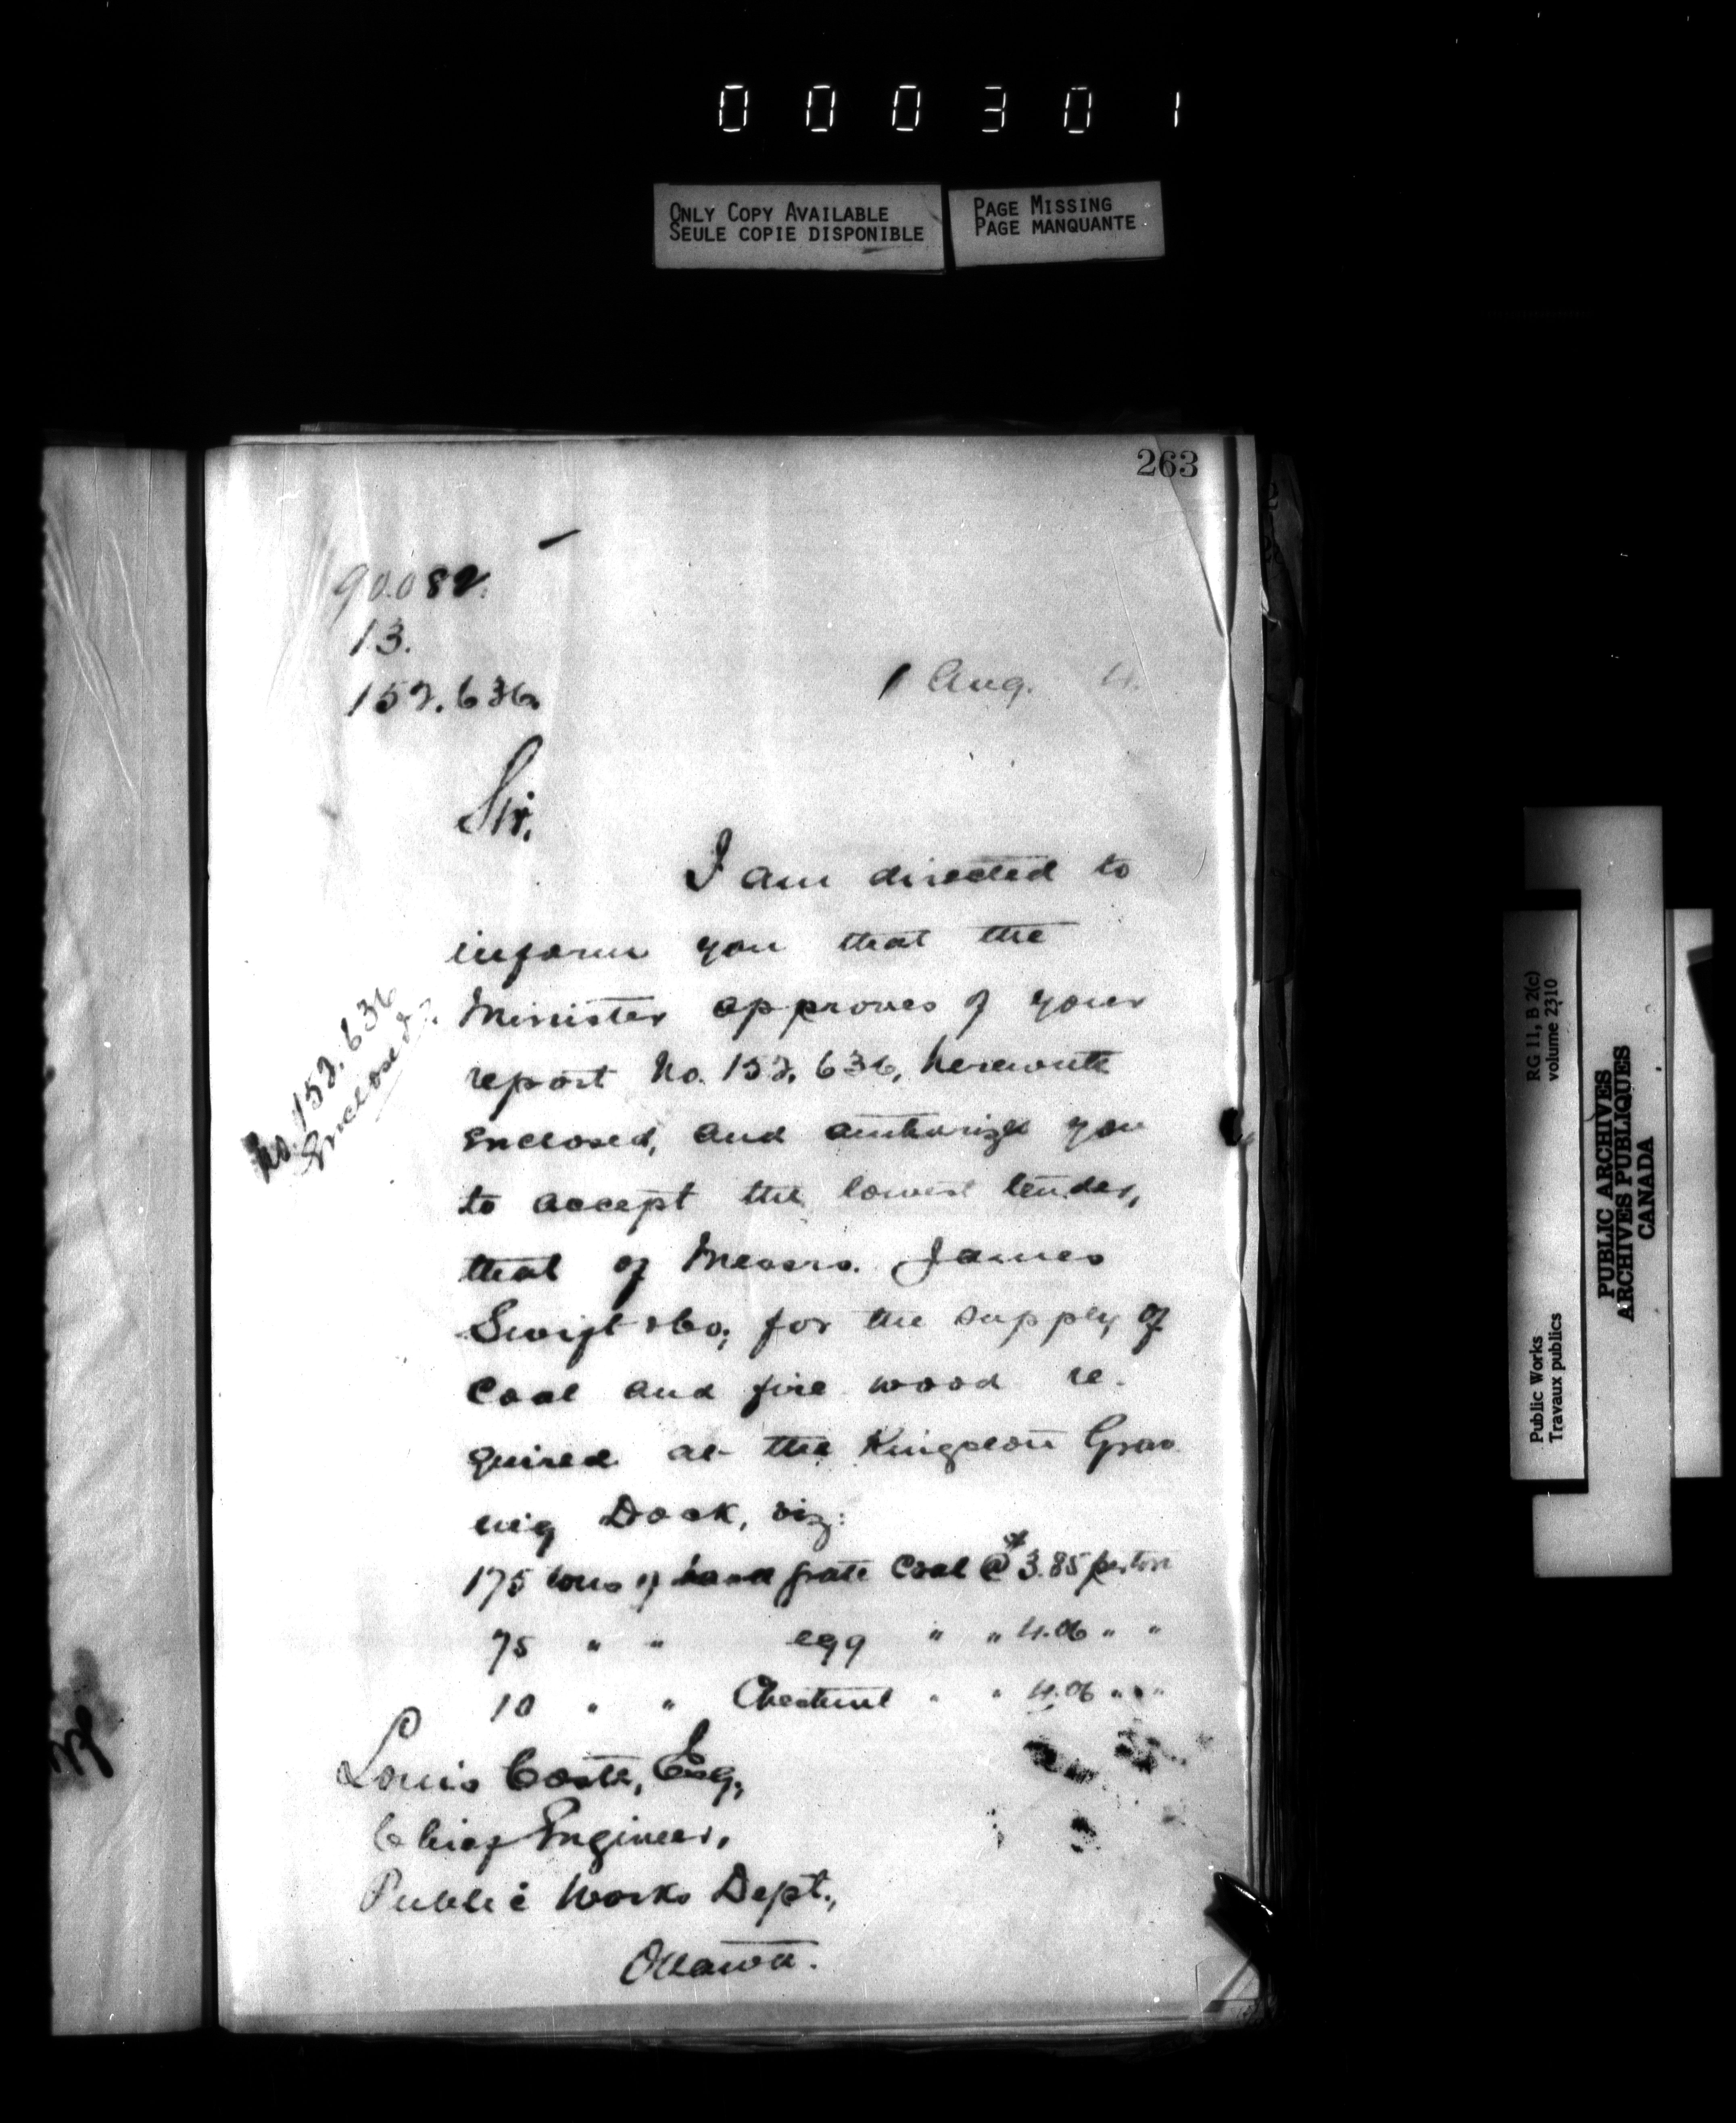 000301
ONLY COPY AVAILABLE
SEULE COPIE DISPONIBLE
PAGE MISSING
PAGE MANQUANTE
263
90.082.
13.
152.636.
1 Aug. 4.
Sir,
I am directed to
inform you that the
Minister approves of your
report No. 152.636, herewith
enclosed, and authorize you
to accept the lowest tender,
that of Messrs. James
Swift & Co; for the supply of
Coal and fire wood re-
quired at the Kingston Grav
ing Dock, viz:
175 tons of grate Coal @ $3.85 per ton
75 " " egg " " 4.06 " "
10 " " Chestnut " " 4.06 " "
No. 152.636
Enclosed.
Louis Coste, Esq.,
Chief Engineer,
Public Works Dept.,
Ottawa.
RG 11, B 2(c)
volume 2310
Public Works
Travaux publics
PUBLIC ARCHIVES
ARCHIVES PUBLIQUES
CANADA